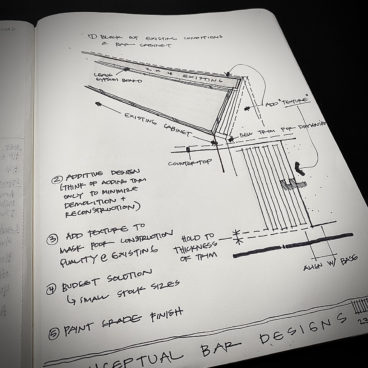 ① BLOCK OUT EXISTING CONDITIONS
@ BAR CABINET
2 x 4 EXISTING
LEAVE
GYPSUM BOARD
EXISTING CABINET
ADD "TEXTURE"
NEW TRIM FOR DIMENSION
COUNTERTOP
② ADDITIVE DESIGN
(THINK OF ADDING TRIM
ONLY TO MINIMIZE
DEMOLITION +
RECONSTRUCTION)
③ ADD TEXTURE TO
MASK POOR CONSTRUCTION
QUALITY @ EXISTING
HOLD TO
THICKNESS
OF TRIM
④ BUDGET SOLUTION
↳ SMALL STOCK SIZES
ALIGN W/ BASE
⑤ PAINT GRADE FINISH
CONCEPTUAL BAR DESIGNS